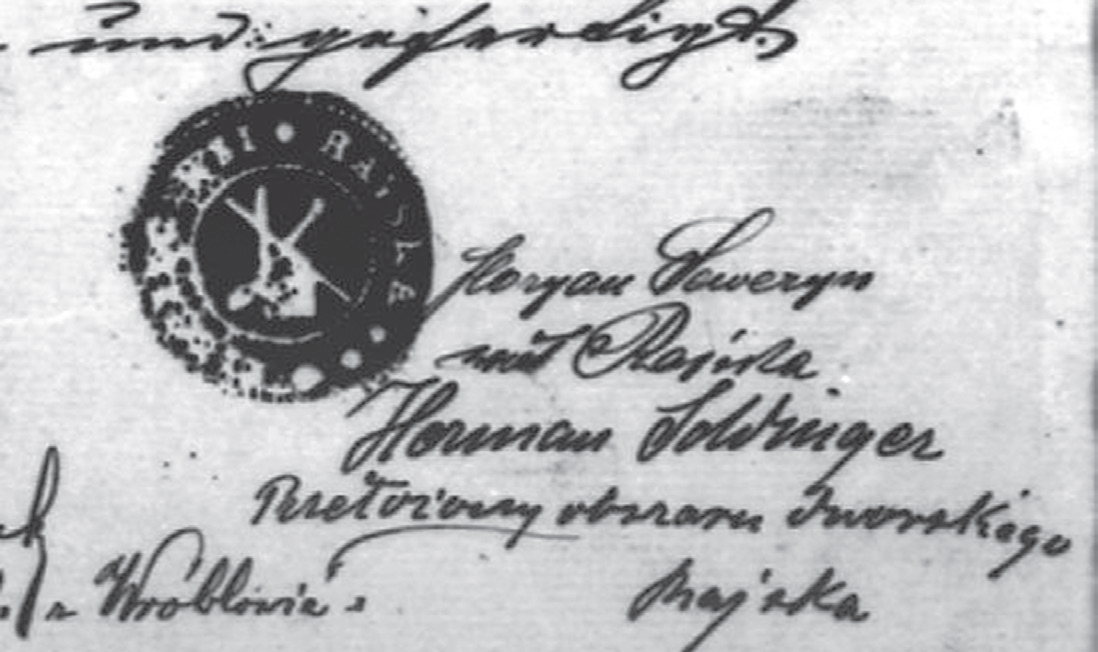 und gefertigt.
RAJSKA
Floryan Seweryn
wójt Rajska
Herman Soldinger
Przełożony obszaru dworskiego
Rajska
z Wróblowic